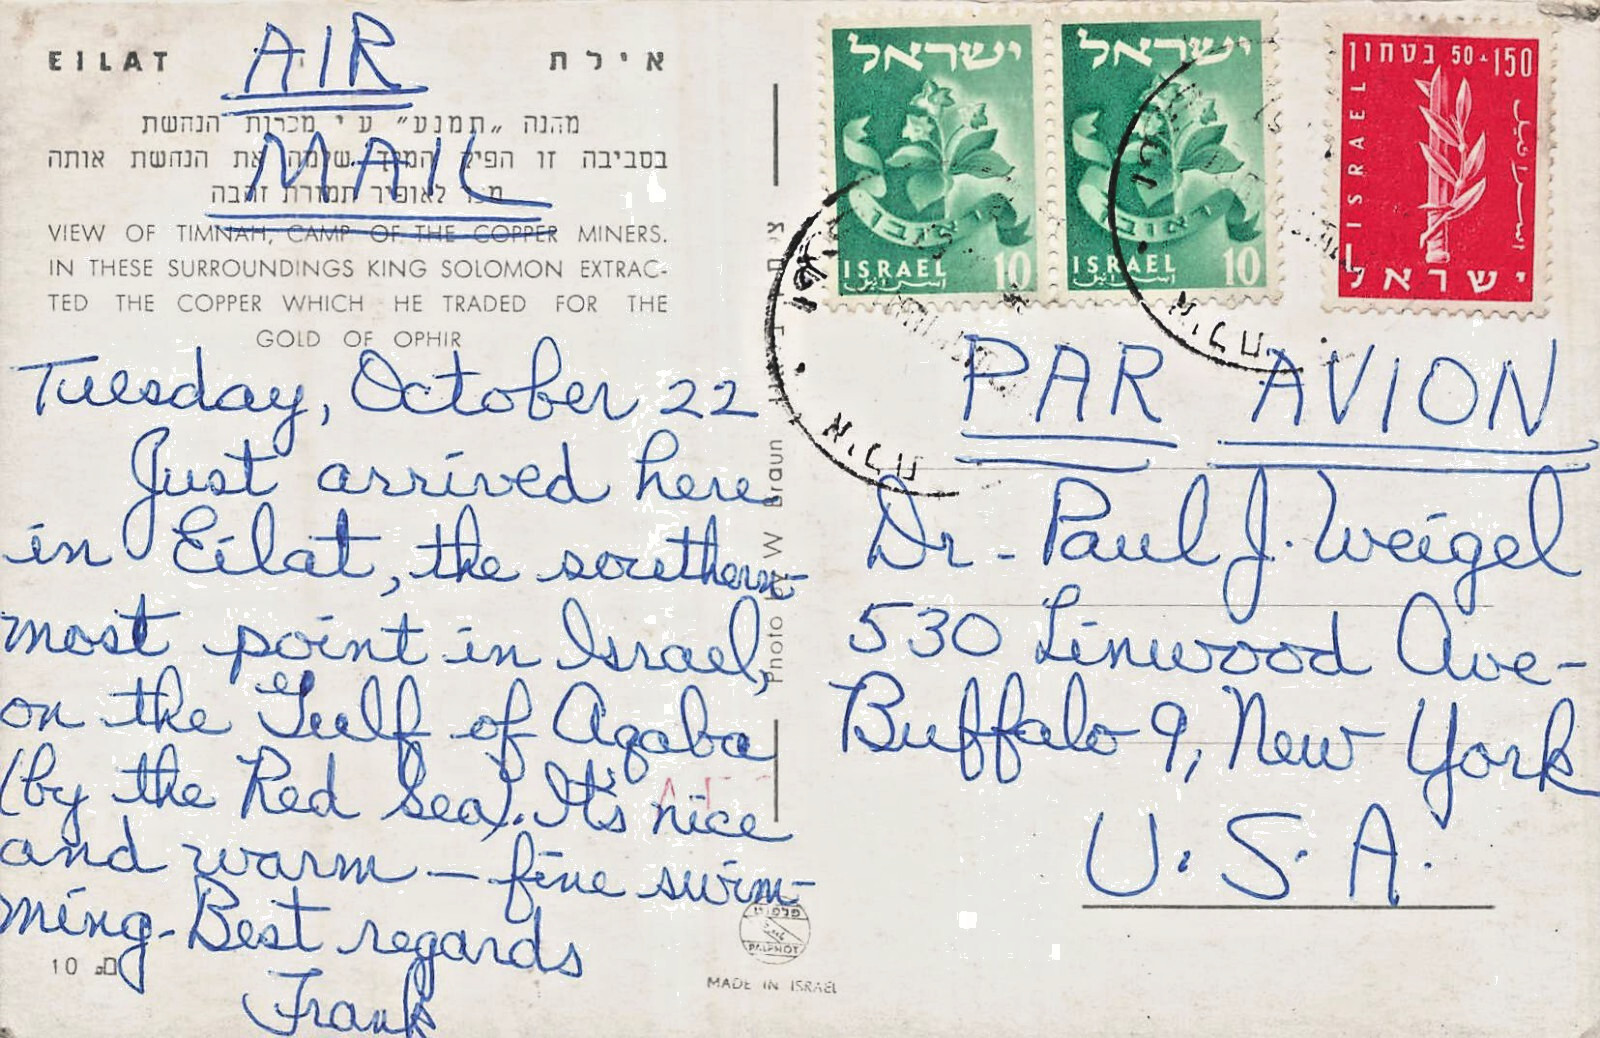 EILAT
אילת
AIR
MAIL
מחנה "תמנע" ע"י מכרות הנחשת
בסביבה זו הפיק המלך שלמה את הנחשת אותה
לאופיר תמורת זהבה
VIEW OF TIMNAH, CAMP OF THE COPPER MINERS.
IN THESE SURROUNDINGS KING SOLOMON EXTRAC-
TED THE COPPER WHICH HE TRADED FOR THE
GOLD OF OPHIR
Tuesday, October 22
Just arrived here
in Eilat, the southern-
most point in Israel,
on the Gulf of Aqaba
(by the Red Sea). It's nice
and warm — fine swim-
ming - Best regards
Frank
10
Photo W Braun
PALPHOT
MADE IN ISRAEL
ישראל
ראובן
ISRAEL 10
اسرائيل
ישראל
ראובן
ISRAEL 10
اسرائيل
150+50 בטחון
ISRAEL
اسرائيل
ישראל
PAR AVION
Dr. Paul J. Weigel
530 Linwood Ave-
Buffalo 9, New York
U.S.A.